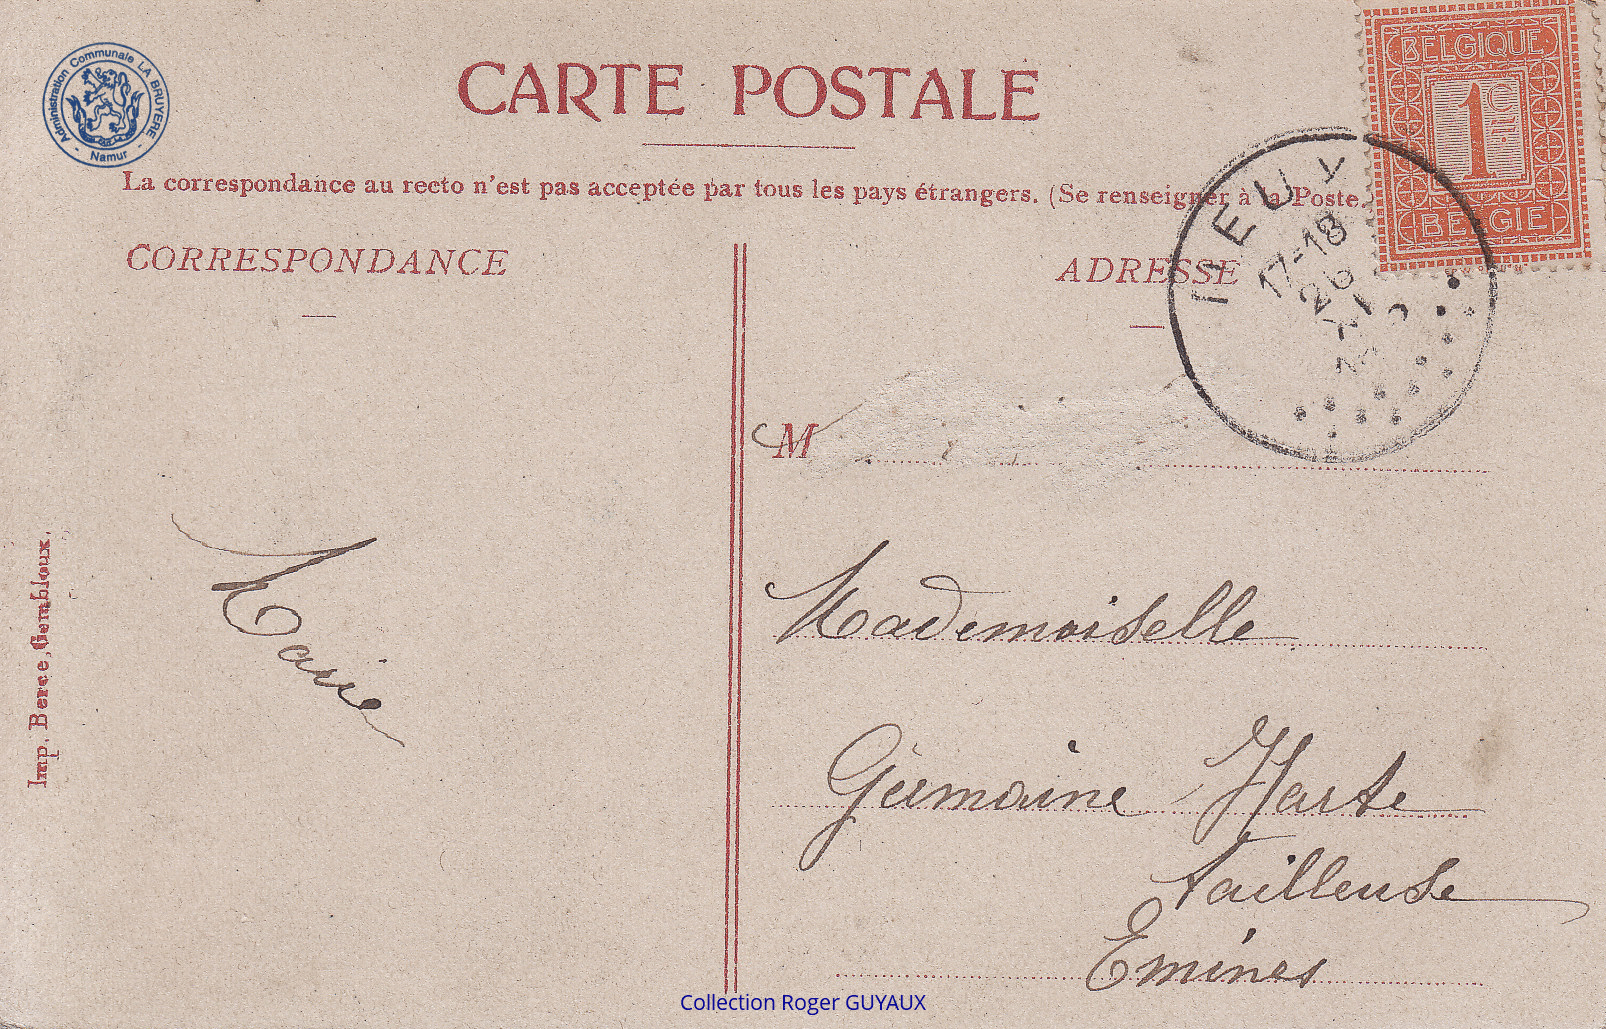 Administration Communale LA BRUYERE
- Namur -
CARTE POSTALE
La correspondance au recto n'est pas acceptée par tous les pays étrangers. (Se renseigner à la Poste
BELGIQUE
1c
BELGIË
17-18
26
XI
CORRESPONDANCE
ADRESSE
M
Marie
Mademoiselle
Germaine Harte
tailleuse
Emines
Imp. Berce, Gembloux.
Collection Roger GUYAUX